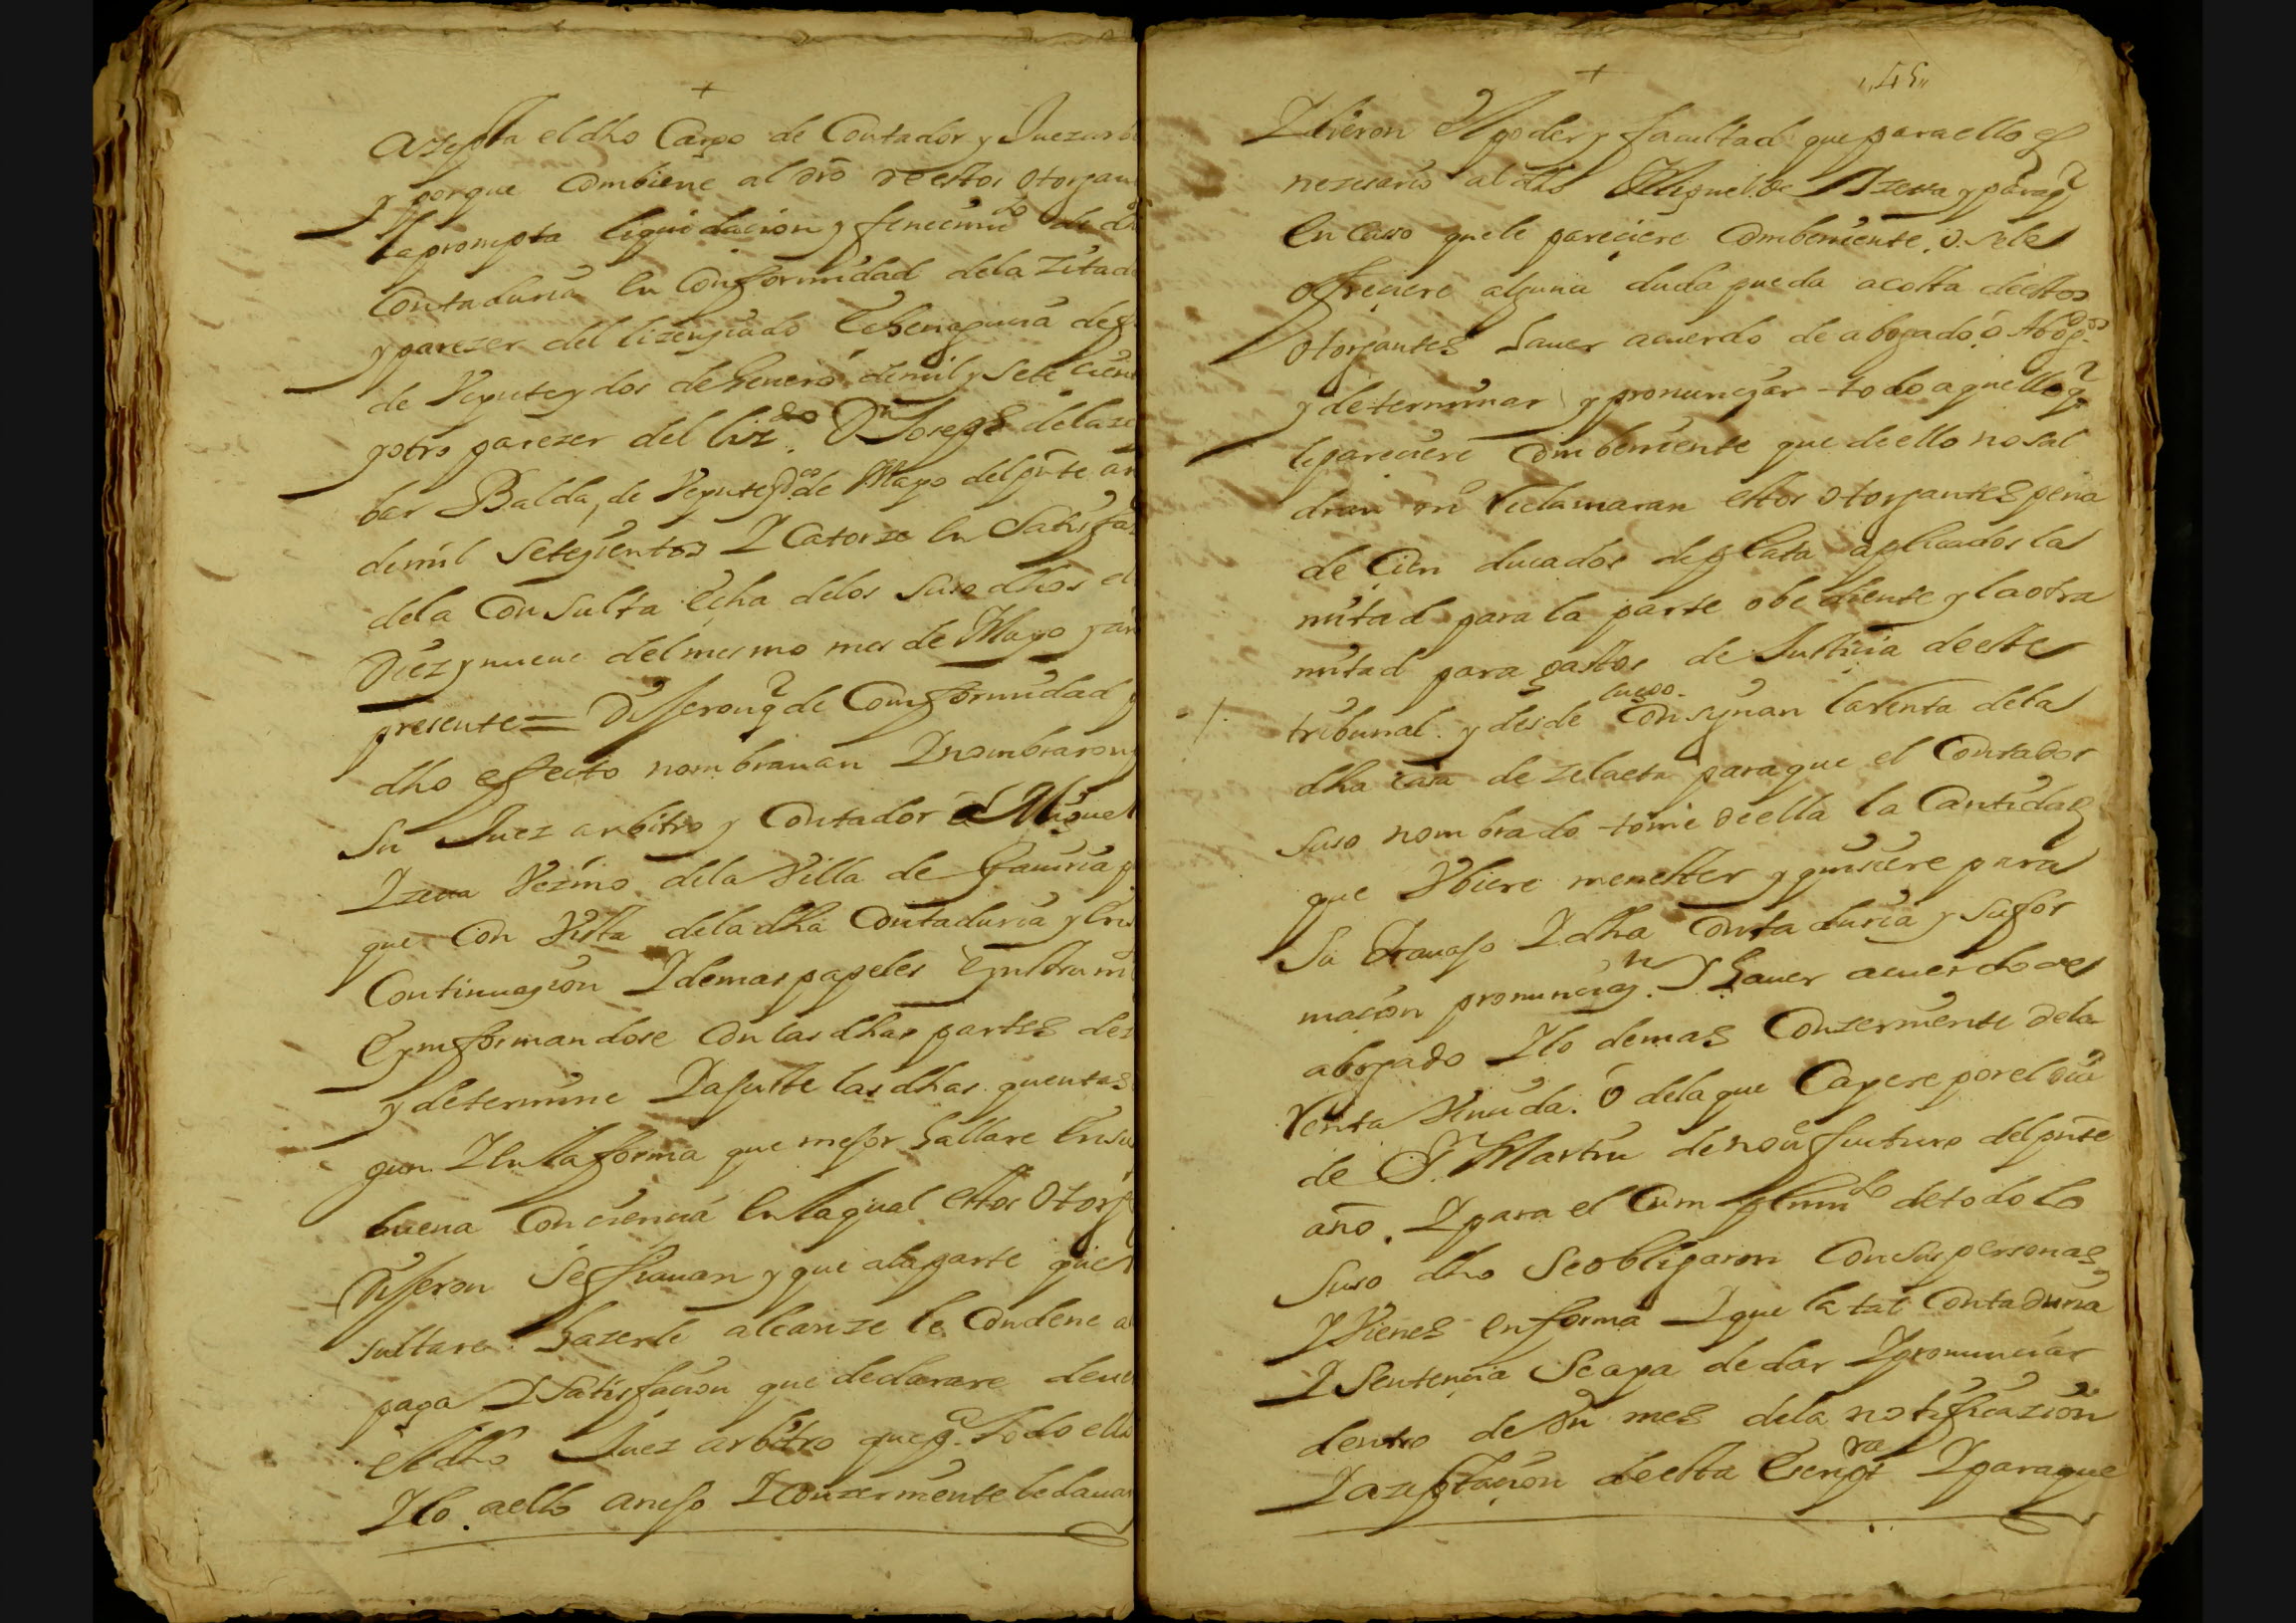 +
azepta el dho Cargo de Contador y Juez
y porque Combiene al dro de estos otorgan
la prompta liquidacion y fenecimto de
Contaduria en Conformidad dela Zitada
y parezer del lizenziado
de Veynte y dos de henero de mil y sete cien
y otro parezer del lizdo Dn Joseph de
bar Balda, de Veynte y dos de Mayo del pnte
de mil setezientos Y Catorze en Satisfa
dela Consulta echa delos suso dhos
Diez y nueue del mesmo mes de Mayo
presente = Dijeron q de Conformidad
dho efecto nombrauan Y nombraron
Su Juez arbitro y Contador a Miguel
Vezino dela Villa de
que Con Vista dela dha Contaduria y
Continuazion Y demas papeles
E ynformandose Con las dhas partes
y determine Y ajuste las dhas quentas
Y en la forma que mejor hallare en su
buena Conciencia en la qual estos otorg
Dijeron Se fiauan y que ala parte que
sultare hazerle alcanze le Condene
paga Y Satisfacion que declarare
el dho Juez arbitro que pa todo ello
Y lo aello anejo Y Conzerniente le dauan
+
Y dieron El poder y facultad que para ello es
nezesario al dho Miguel de y para q
en Caso que le pareciere Combeniente, o se le
ofreciere alguna duda pueda acosta de estos
otorgantes hauer acuerdo de abogado o Abogdos
y determinar y pronunziar todo aquello q
le pareciere Combeniente que de ello no sal
dran ni Reclamaran estos otorgantes pena
de Cien ducados de plata aplicados la
mitad para la parte obediente y la otra
mitad para gastos de Justicia de este
luego
tribunal. y desde Consynan la Renta dela
dha casa de para que el Contador
suso nombrado tome de ella la Cantidad
que Vbiere menester y quisiere para
Su trauajo Y dha Contaduria y su for
macion pronunciazn Y hauer acuerdo de
abogado Y lo demas Conzerniente dela
Renta Venida. o dela que Cayere por el dia
de Sn Martin de noue futuro del pnte
año. Y para el Cumplimto de todo lo
suso dho se obligaron Con sus personas
Y Vienes en forma Y que la tal Contaduria
Y Sentencia Se aya de dar Y pronunciar
dentro de Vn mes dela notificazion
Y azeptacion de esta Escripra Y para que